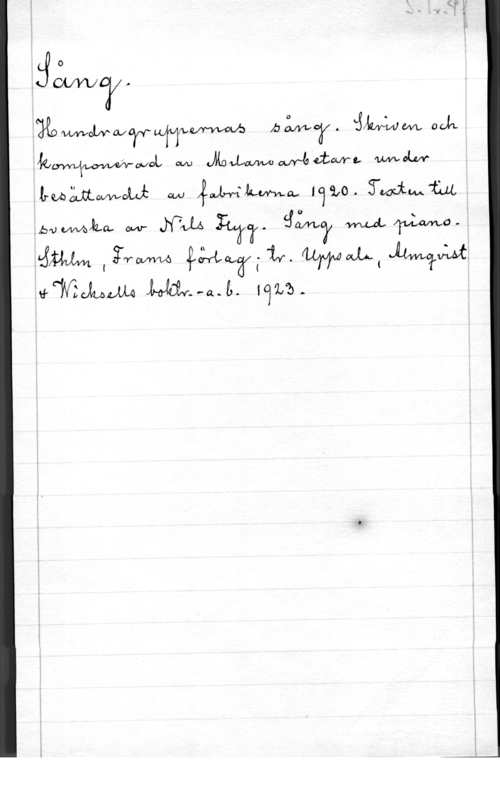 Sång.
Hundragruppernas sång. Skriven och
komponerad av Milanoarbetare under
besättandet av fabrikerna 1920. Texten till
svenska av Nils Flyg. Sång med piano.
Sthlm, Frams förlag; tr. Uppsala, Almqvist
& Wicksells boktr.-a.b. 1923.